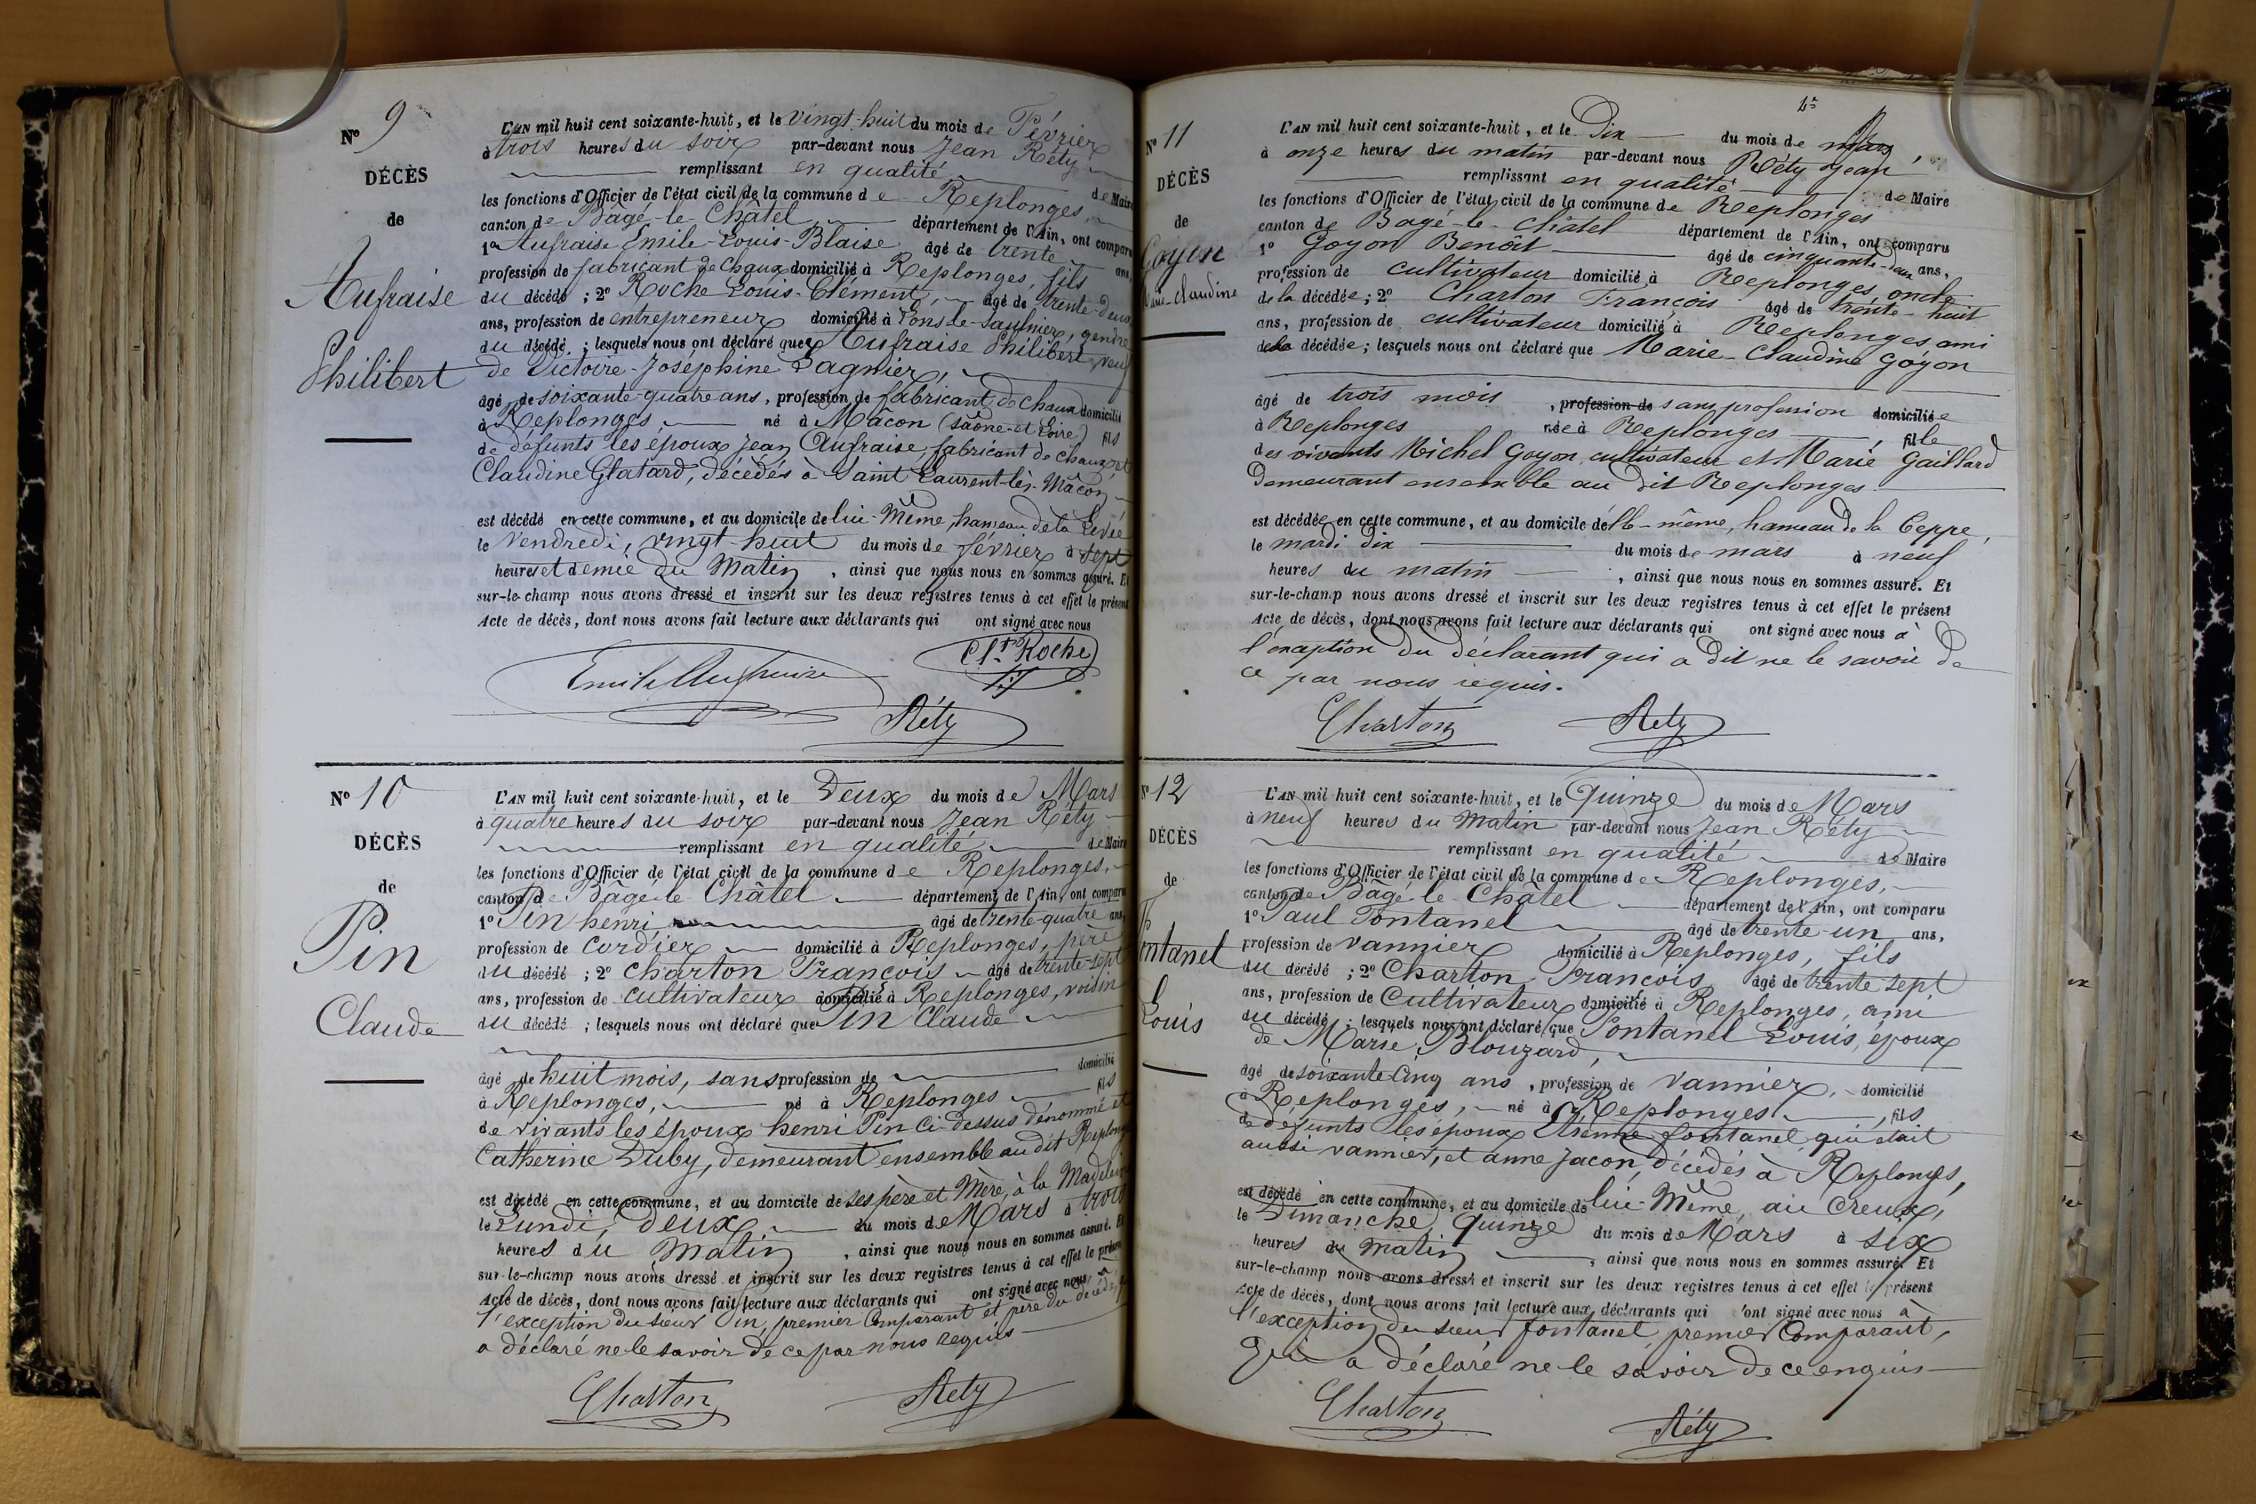 Nº 9
DÉCÈS
de
Aufraise
Philibert
L'AN mil huit cent soixante-huit, et le vingt-huit du mois de Février
à trois heures du soir par-devant nous Jean Réty
remplissant en qualité de Maire
les fonctions d'Officier de l'état civil de la commune de Replonges
canton de Bâgé-le-Châtel département de l'Ain, ont comparu
1º Aufraise Emile-Louis-Blaise âgé de trente ans,
profession de fabricant de chaux domicilié à Replonges, fils
du décédé ; 2º Roche Louis-Clément, âgé de trente-deux
ans, profession de entrepreneur domicilié à Lons-le-Saulnier, gendre
du décédé ; lesquels nous ont déclaré que Aufraise Philibert, veuf
de Victoire-Joséphine Pagnier,
âgé de soixante-quatre ans, profession de fabricant de chaux domicilié
à Replonges, né à Mâcon (Saône-et-Loire) fils
de défunts les époux Jean Aufraise, fabricant de chaux, et
Claudine Glatard, décédés à Saint Laurent-lès-Mâcon
est décédé en cette commune, et au domicile de lui-Même, hameau de la Levée
le Vendredi, vingt-huit du mois de février à sept
heures et demie du Matin, ainsi que nous nous en sommes assuré. Et
sur-le-champ nous avons dressé et inscrit sur les deux registres tenus à cet effet le présent
Acte de décès, dont nous avons fait lecture aux déclarants qui ont signé avec nous
Emile Aufraise Ct. Roche
Réty
Nº 10
DÉCÈS
de
Pin
Claude
L'AN mil huit cent soixante-huit, et le Deux du mois de Mars
à quatre heures du soir par-devant nous Jean Réty
remplissant en qualité de Maire
les fonctions d'Officier de l'état civil de la commune de Replonges,
canton de Bâgé-le-Châtel département de l'Ain, ont comparu
1º Pin henri âgé de trente-quatre ans,
profession de cordier domicilié à Replonges, père
du décédé ; 2º Charton François âgé de trente-sept
ans, profession de cultivateur domicilié à Replonges, voisin
du décédé ; lesquels nous ont déclaré que Pin Claude
âgé de huit mois, sans profession de domicilié
à Replonges, né à Replonges fils
de vivants les époux henri Pin ci-dessus dénommé et
Catherine Duby, demeurant ensemble au dit Replonges
est décédé en cette commune, et au domicile de ses père et Mère, à la Madeleine
le Lundi, deux du mois de Mars à trois
heures du Matin, ainsi que nous nous en sommes assuré. Et
sur-le-champ nous avons dressé et inscrit sur les deux registres tenus à cet effet le présent
Acte de décès, dont nous avons fait lecture aux déclarants qui ont signé avec nous à
l'exception du sieur Pin, premier comparant et père du décédé
a déclaré ne le savoir de ce par nous requis
Charton Réty
Nº 11
DÉCÈS
de
Goyon
Marie-Claudine
L'AN mil huit cent soixante-huit, et le Dix du mois de Mars,
à onze heures du matin par-devant nous Réty Jean
remplissant en qualité de Maire
les fonctions d'Officier de l'état civil de la commune de Replonges
canton de Bagé-le-Châtel département de l'Ain, ont comparu
1º Goyon Benoît âgé de cinquante-deux ans,
profession de cultivateur domicilié à Replonges, oncle
de la décédée ; 2º Charton François âgé de trente-huit
ans, profession de cultivateur domicilié à Replonges ami
de la décédée ; lesquels nous ont déclaré que Marie-Claudine Goyon
âgé de trois mois, profession de sans profession domiciliée
à Replonges née à Replonges fille
des vivants Michel Goyon, cultivateur et Marie Gaillard
Demeurant ensemble au dit Replonges
est décédée en cette commune, et au domicile d'elle-même, hameau de la Ceppe,
le mardi dix du mois de mars à neuf
heures du matin, ainsi que nous nous en sommes assuré. Et
sur-le-champ nous avons dressé et inscrit sur les deux registres tenus à cet effet le présent
Acte de décès, dont nous avons fait lecture aux déclarants qui ont signé avec nous à
l'exception du déclarant qui a dit ne le savoir de
ce par nous requis.
Charton Réty
Nº 12
DÉCÈS
de
Fontanel
Louis
L'AN mil huit cent soixante-huit, et le Quinze du mois de Mars
à neuf heures du Matin par-devant nous Jean Réty
remplissant en qualité de Maire
les fonctions d'Officier de l'état civil de la commune de Replonges,
canton de Bâgé-le-Châtel département de l'Ain, ont comparu
1º Paul Fontanel âgé de trente-un ans,
profession de vannier domicilié à Replonges, fils
du décédé ; 2º Charton François âgé de trente sept
ans, profession de Cultivateur domicilié à Replonges, ami
du décédé ; lesquels nous ont déclaré que Fontanel Louis, époux
de Marie Blouzard,
âgé de soixante-cinq ans, profession de vannier, domicilié
à Replonges, né à Replonges, fils
de défunts les époux Etienne fontanel qui était
aussi vannier, et anne Jacon, décédés à Replonges,
est décédé en cette commune, et au domicile de lui-Même, au Creux,
le Dimanche, Quinze du mois de Mars à six
heures du Matin, ainsi que nous nous en sommes assuré. Et
sur-le-champ nous avons dressé et inscrit sur les deux registres tenus à cet effet le présent
Acte de décès, dont nous avons fait lecture aux déclarants qui ont signé avec nous à
l'exception du sieur fontanel premier Comparant,
Qui a déclaré ne le savoir de ce enquis
Charton Réty